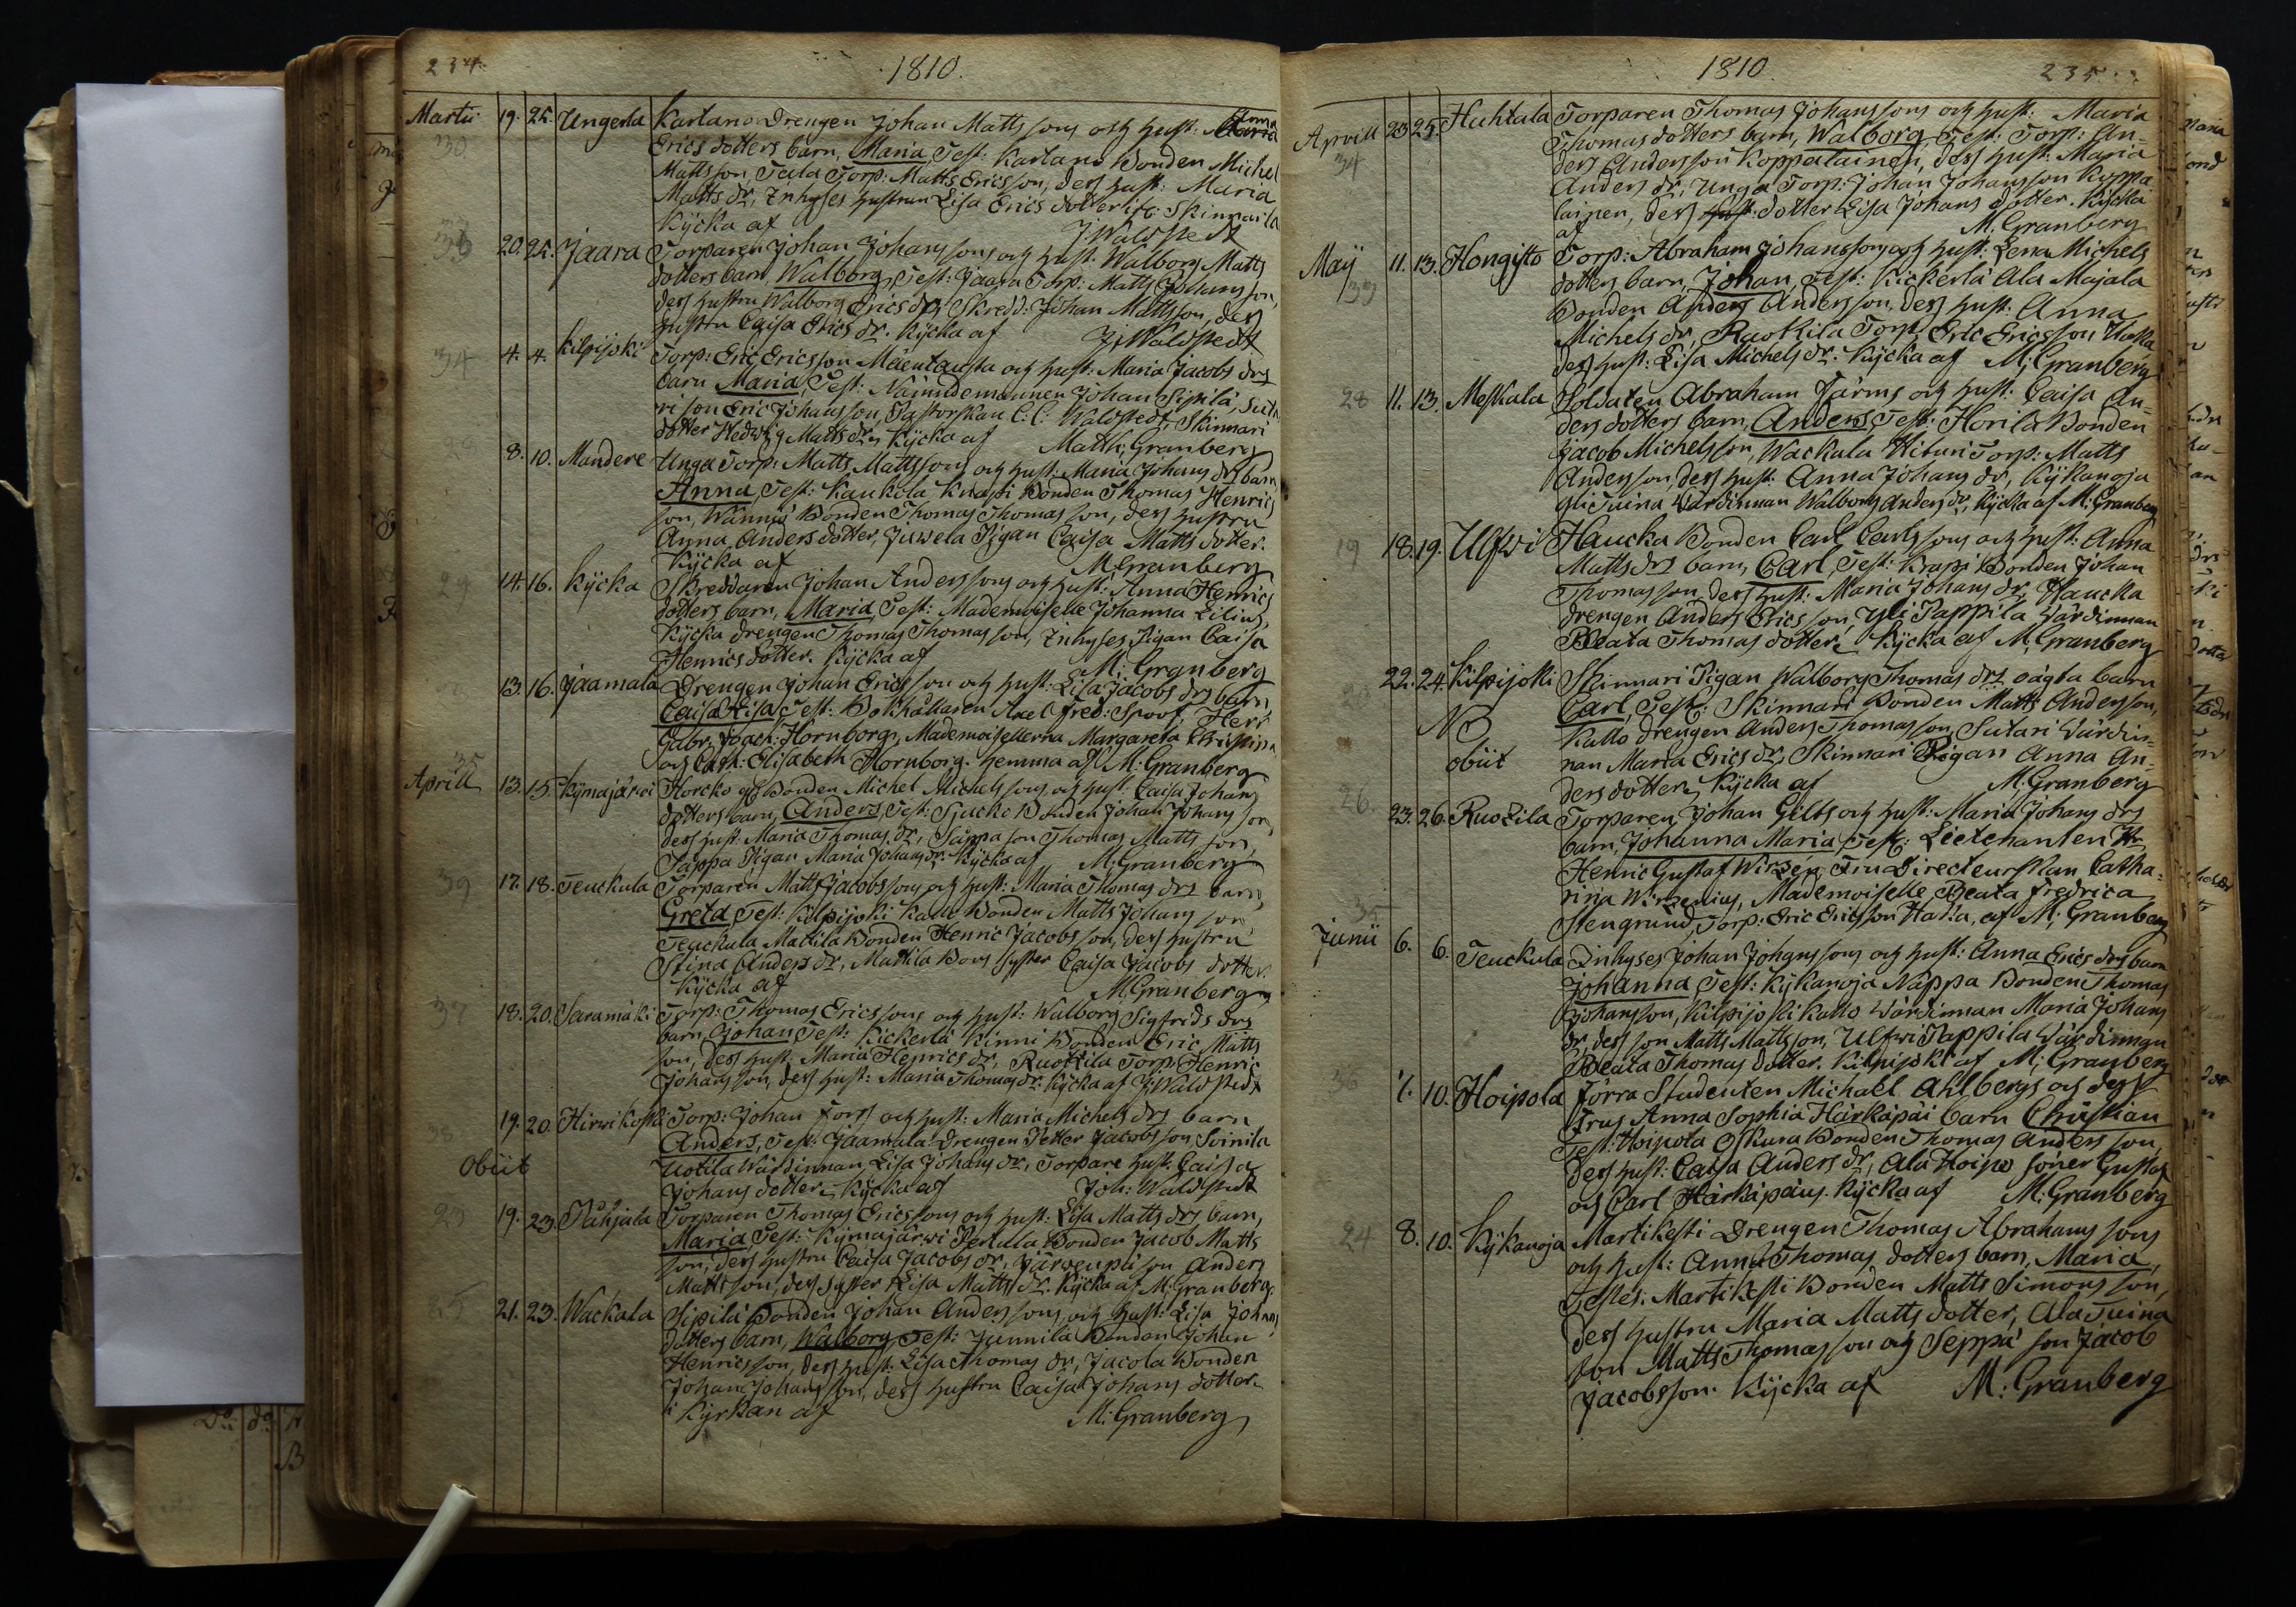 234.
1810.
Martii 19. 25. Ungerla Kartano Drengen Johan Matts sons och hust: Anna
30 Erics dotters barn, Maria, Test: Kartano Bonden Michel
Mattsson, Torp: Matts Ericsson, dess hust: Maria
Matts dr, Inhyses hustrun Lisa Erics dotter
Kycka af J: Waldstedt
33 20. 25. Jaara Torparen Johan Johans sons och hust: Walborg Matts
dotters barn, Walborg, Test: Jaara Torp: Matts Johansson,
dess hustru Walborg Erics dr, Skredd: Johan Mattsson, dess
hustru Caisa Erics dr. Kycka af J: Waldstedt
34 4. 4. Kilpijoki Torp: Eric Ericsson Mäentausta och hust: Maria Jacobs drs
barn Maria, Test: Nämndemannen Johan Sipilä, Suta
ri son Eric Johansson, Pastorskan C: C: Waldstedt, Skinnari
dotter Hedwig Matts dr, Kycka af Matth: Granberg
8. 10. Mandere Unga Torp: Matts Matts sons och hust: Maria Johans drs barn
Anna, Test: Kaukola Knapi Bonden Thomas Henrics
son, Wännä Bonden Thomas Thomasson, dess hustru
Anna Anders dotter, Juwela Pigan Caisa Matts dotter.
Kycka af M: Granberg
29 14. 16. Kycka Skreddaren Johan Anderssons och hust: Anna Henrics
dotters barn, Maria, Test: Mademoiselle Johanna Lilius,
Kycka drengen Thomas Thomasson, Inhyses Pigan Caisa
Henrics dotter. Kycka af M: Granberg
13. 16. Jaamala Drengen Johan Ericsson och hust: Lisa Jacobs drs barn,
Caisa Lisa Test: Bokhållaren Axel Fred: Spoof, Herr
Gabr. Joach: Hornborg, Mademoisellerna Margareta Christina
och Cath: Elisabeth Hornborg. hemma af M: Granberg
35
Aprill 13. 15. Kymajärwi Horcko Bonden Michel Michels sons och hust: Caisa Johans
dotters barn, Anders, Test: Sjucko Bonden Johan Johansson,
dess hust: Maria Thomas dr, Säppä son Thomas Mattsson,
Säppä Pigan Maria Johans dr. Kycka af M: Granberg
39 17. 18. Teuckula Torparen Matts Jacobs sons och hust: Maria Thomas drs barn,
Greta, Test: Kilpijoki Kallo Bonden Matts Johansson
Teuckula Mattila Bonden Henric Jacobsson, dess hustru
Stina Anders dr, Mattila Bons syster Caisa Jacobs dotter.
Kycka af M: Granberg
37 18. 20. Saramäki Torp: Thomas Erics sons och hust: Walborg Sigfrids drs
barn, Johan, Test: Kickerlä Kinni Bonden Eric Matts
son, dess hust: Maria Henrics dr, Ruokila Torp: Henric
Johansson, dess hust: Maria Thomas dr: Kycka af J: Waldstedt
19. 20. Hirwikoski Torp: Johan Fors och hust: Maria Michels drs barn
Anders, Test: Jaamala Drengen Petter Jacobsson Soinila
Obiit Uotila Wärdinnan Lisa Johans dr, Torpare hust: Caisa
Johans dotter, Kycka af Joh: Waldstedt
23 19. 23. Pähjala Torparen Thomas Ericssons och hust: Lisa Matts drs barn,
Maria, Test: Kymajärwi Pertula Bonden Jacob Matts
son, dess hustru Caisa Jacobs dr, Järwenpää son Anders
Mattsson, dess Syster Lisa Matts dr. Kycka af M: Granberg.
25 21. 23. Wackala Sipilä Bonden Johan Anders sons och hust: Lisa Johans
dotters barn, Walborg, Test: Junnila Bonden Johan
Henricsson, dess hust: Lisa Thomas dr, Jacola Bonden
Johan Johansson, dess hustru Caisa Johans dotter
i Kyrkan af M: Granberg
1810.
235.
Aprill 23 25. Huhtala Torparen Thomas Johans sons och hust: Maria
34 Thomas dotters barn, Walborg, Test: Torp: An-
ders Andersson Koppalainen, dess hust: Maria
Anders dr, Unga Torp: Johan Johansson Koppa
lainen, dess dotter Lisa Johans dotter. Kycka
af M: Granberg
Maÿ 11. 13. Hongisto Torp: Abraham Johanssons och hust: Lena Michels
33 dotters barn, Johan, Test: Kickerlä Ala Majala
Bonden Anders Andersson, dess hust: Anna
Michels dr, Ruokila Torp: Eric Ericsson
dess hust: Lisa Michels dr. Kycka af M: Granberg
28 11. 13. Meskala Soldaten Abraham Färms och hust: Caisa An-
ders dotters barn, Anders, Test: Horila Bonden
Jacob Michelsson, Wackala Hituri Torp: Matts
Andersson, dess hust: Anna Johans dr, Kykanoja
Yli Tuina Wärdinnan Walborg Anders dr, Kycka af M: Granberg
19 18. 19. Ulfwi Haucka Bonden Carl Carls sons och hust: Anna
Matts drs barn, Carl, Test: Krapi Bonden Johan
Thomasson, dess hust: Maria Johans dr, Haucka
drengen Anders Ericsson, Yli Pappila Wärdinnan
Beata Thomas dotter, Kycka af M: Granberg
22. 24. Kilpijoki Skinnari Pigan Walborg Thomas drs oägta barn
NB Carl, Test: Skinnari Bonden Matts Andersson,
Kallo drengen Anders Thomasson, Sutari Wärdin-
obiit nan Maria Erics dr, Skinnari Pigan Anna An-
ders dotter, Kycka af M: Granberg
26. 23. 26. Ruokila Torparen Johan Gilts och hust: Maria Johans drs
barn, Johanna Maria, Test: Lietenanten Hr
Henric Gustaf Wirzén, Fru Directeurskan Catha-
rina Wirzenius, Mademoiselle Beata Fredrica
35 Stengrund, Torp: Eric Ericsson Halla, af M: Granberg
Junii 6. 6. Teuckula Inhyses Johan Johans sons och hust: Anna Erics drs barn
Johanna, Test: Kykanoja Näppä Bonden Thomas
Johansson, Kilpijoki Kallo Wärdinnan Maria Johans
dr, dess son Matts Mattsson, Ulfwi Pappila Wärdinnan
Beata Thomas dotter. Kilpijoki af M: Granberg
36 7. 10. Hoipola Förra Studenten Michael Ahlbergs och dess
Frus Anna Sophia Härkäpäi barn Christian
Test: Hoipola Oskura Bonden Thomas Andersson,
dess hust: Caisa Anders dr, Ala Hoipo söner Gustaf
och Carl Härkäpäus. Kycka af M: Granberg
24 8. 10. Kykanoja Martikesti Drengen Thomas Abrahams sons
och hust: Anna Thomas dotters barn, Maria,
Testes: Martikesti Bonden Matts Simonsson,
dess hustru Maria Matts dotter, Ala Tuina
son Matts Thomasson och Seppä son Jacob
Jacobsson. Kycka af M: Granberg